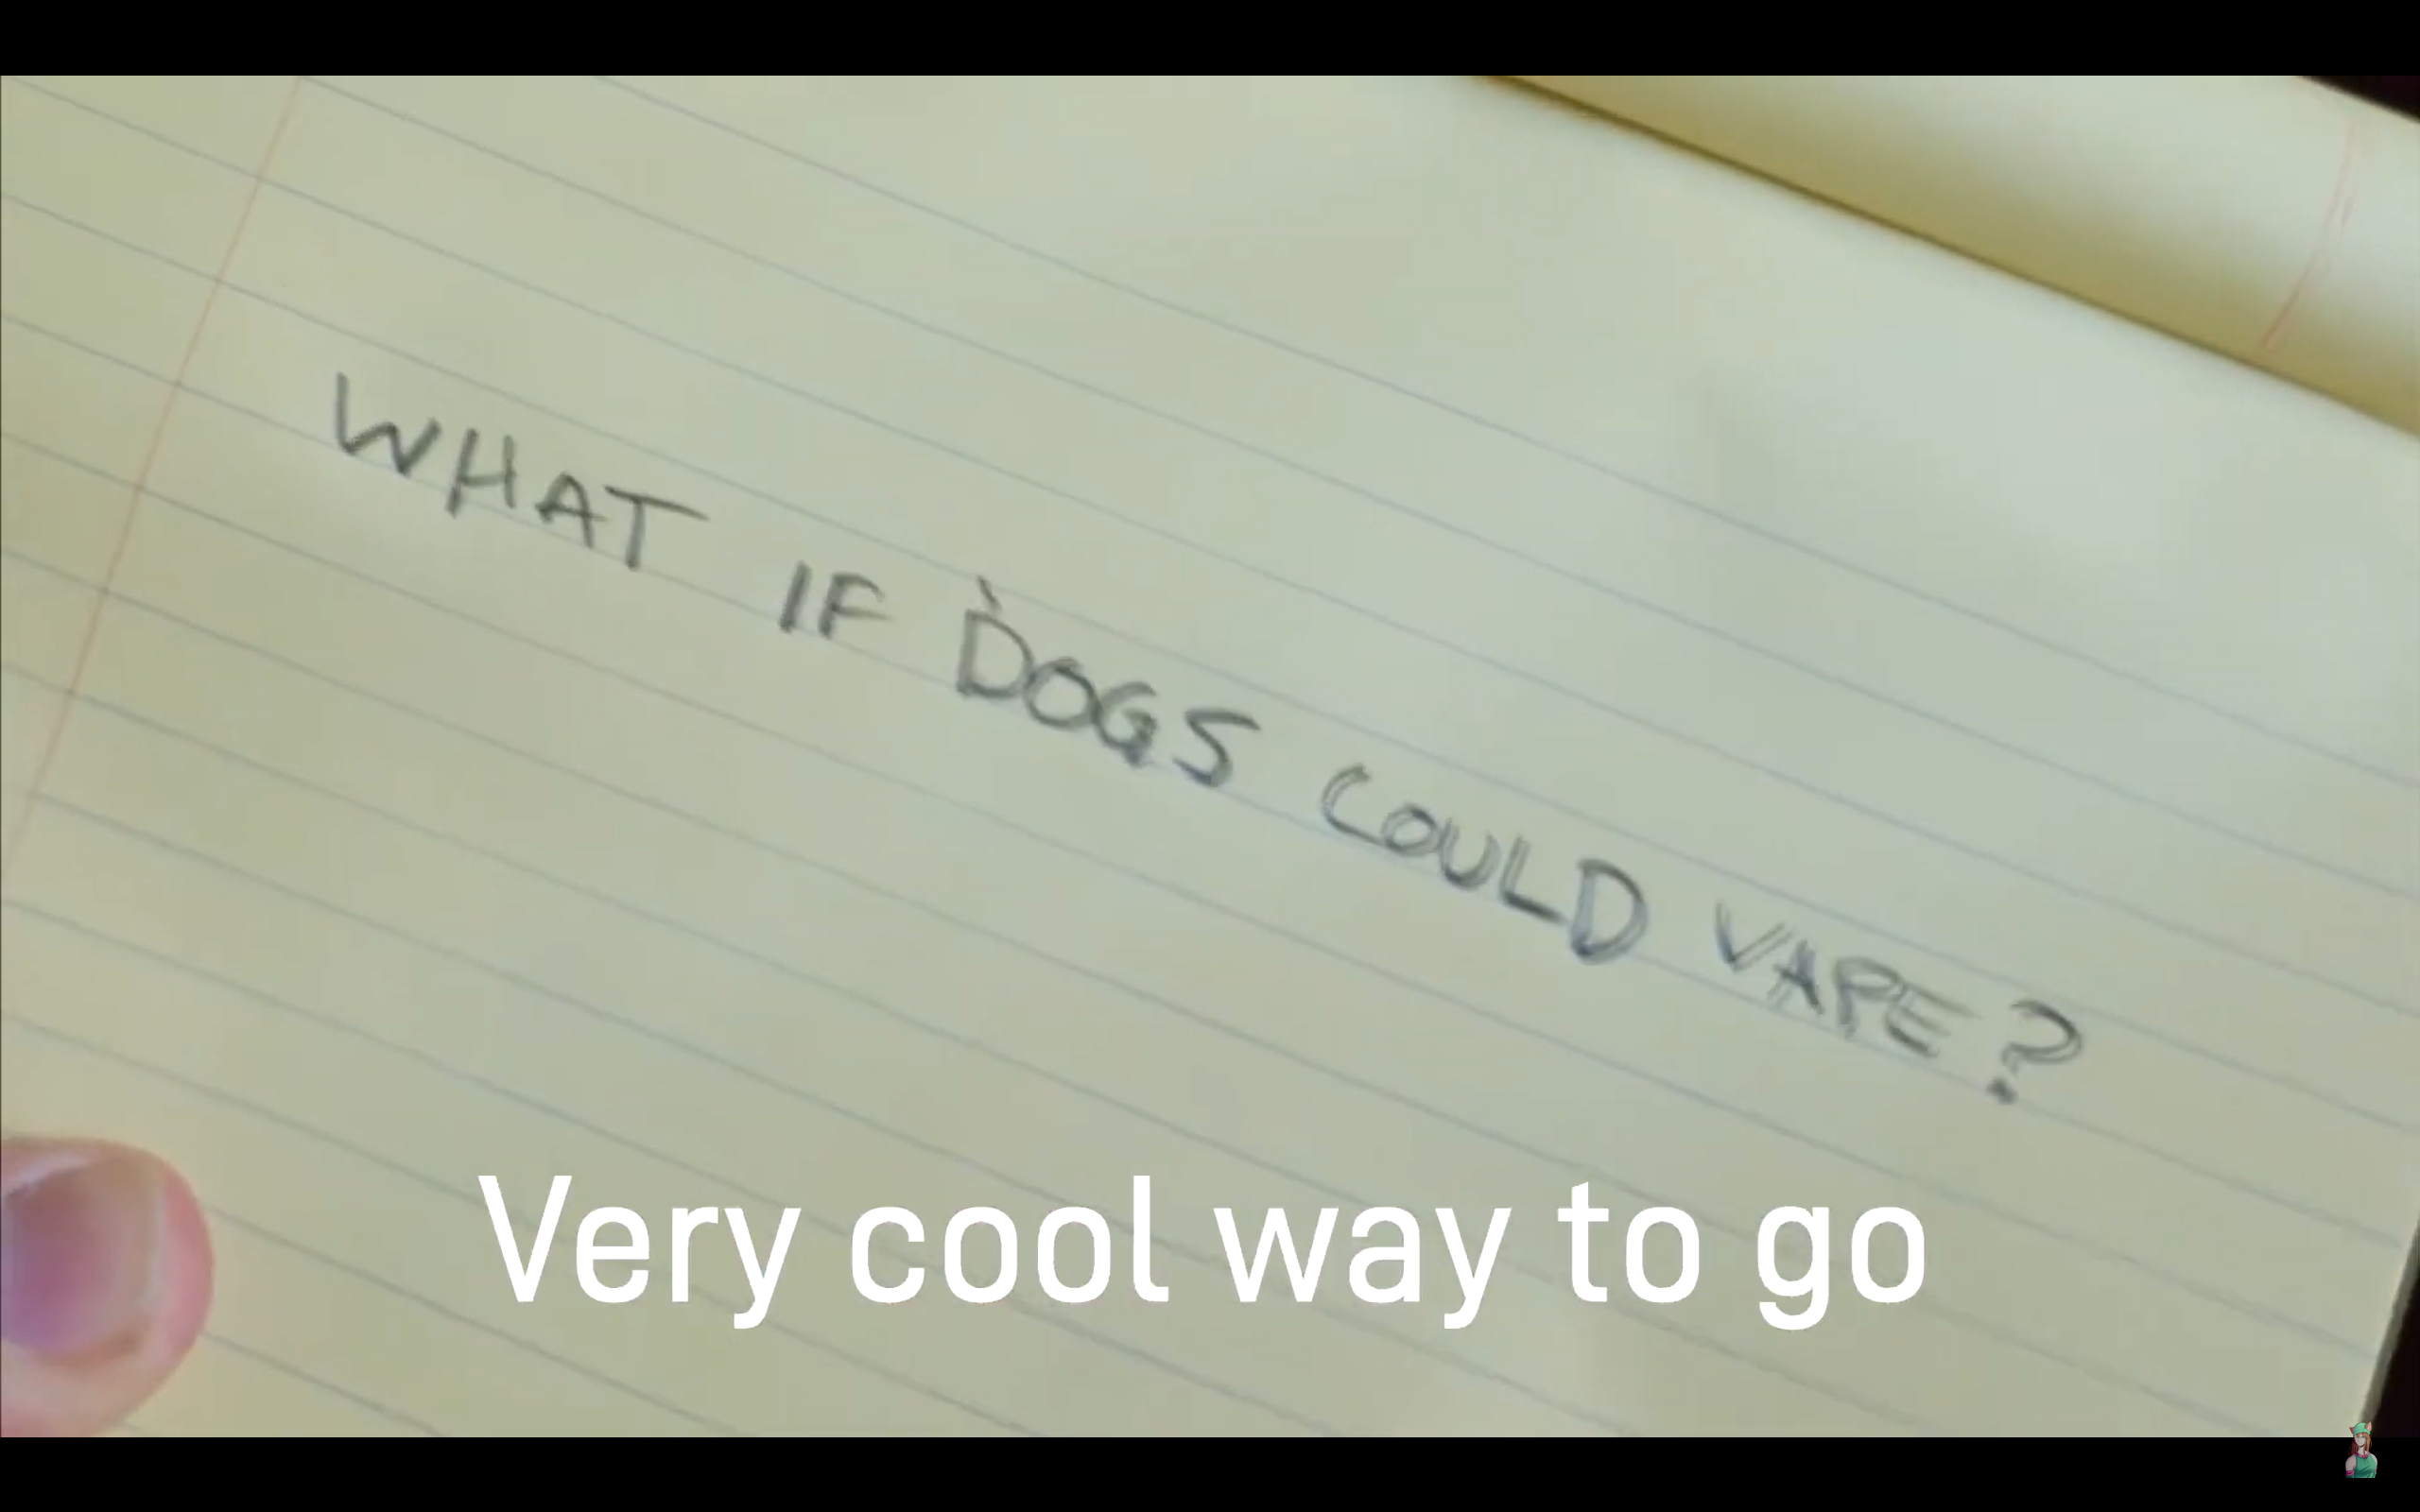 WHAT IF DOGS COULD VAPE?
Very cool way to go